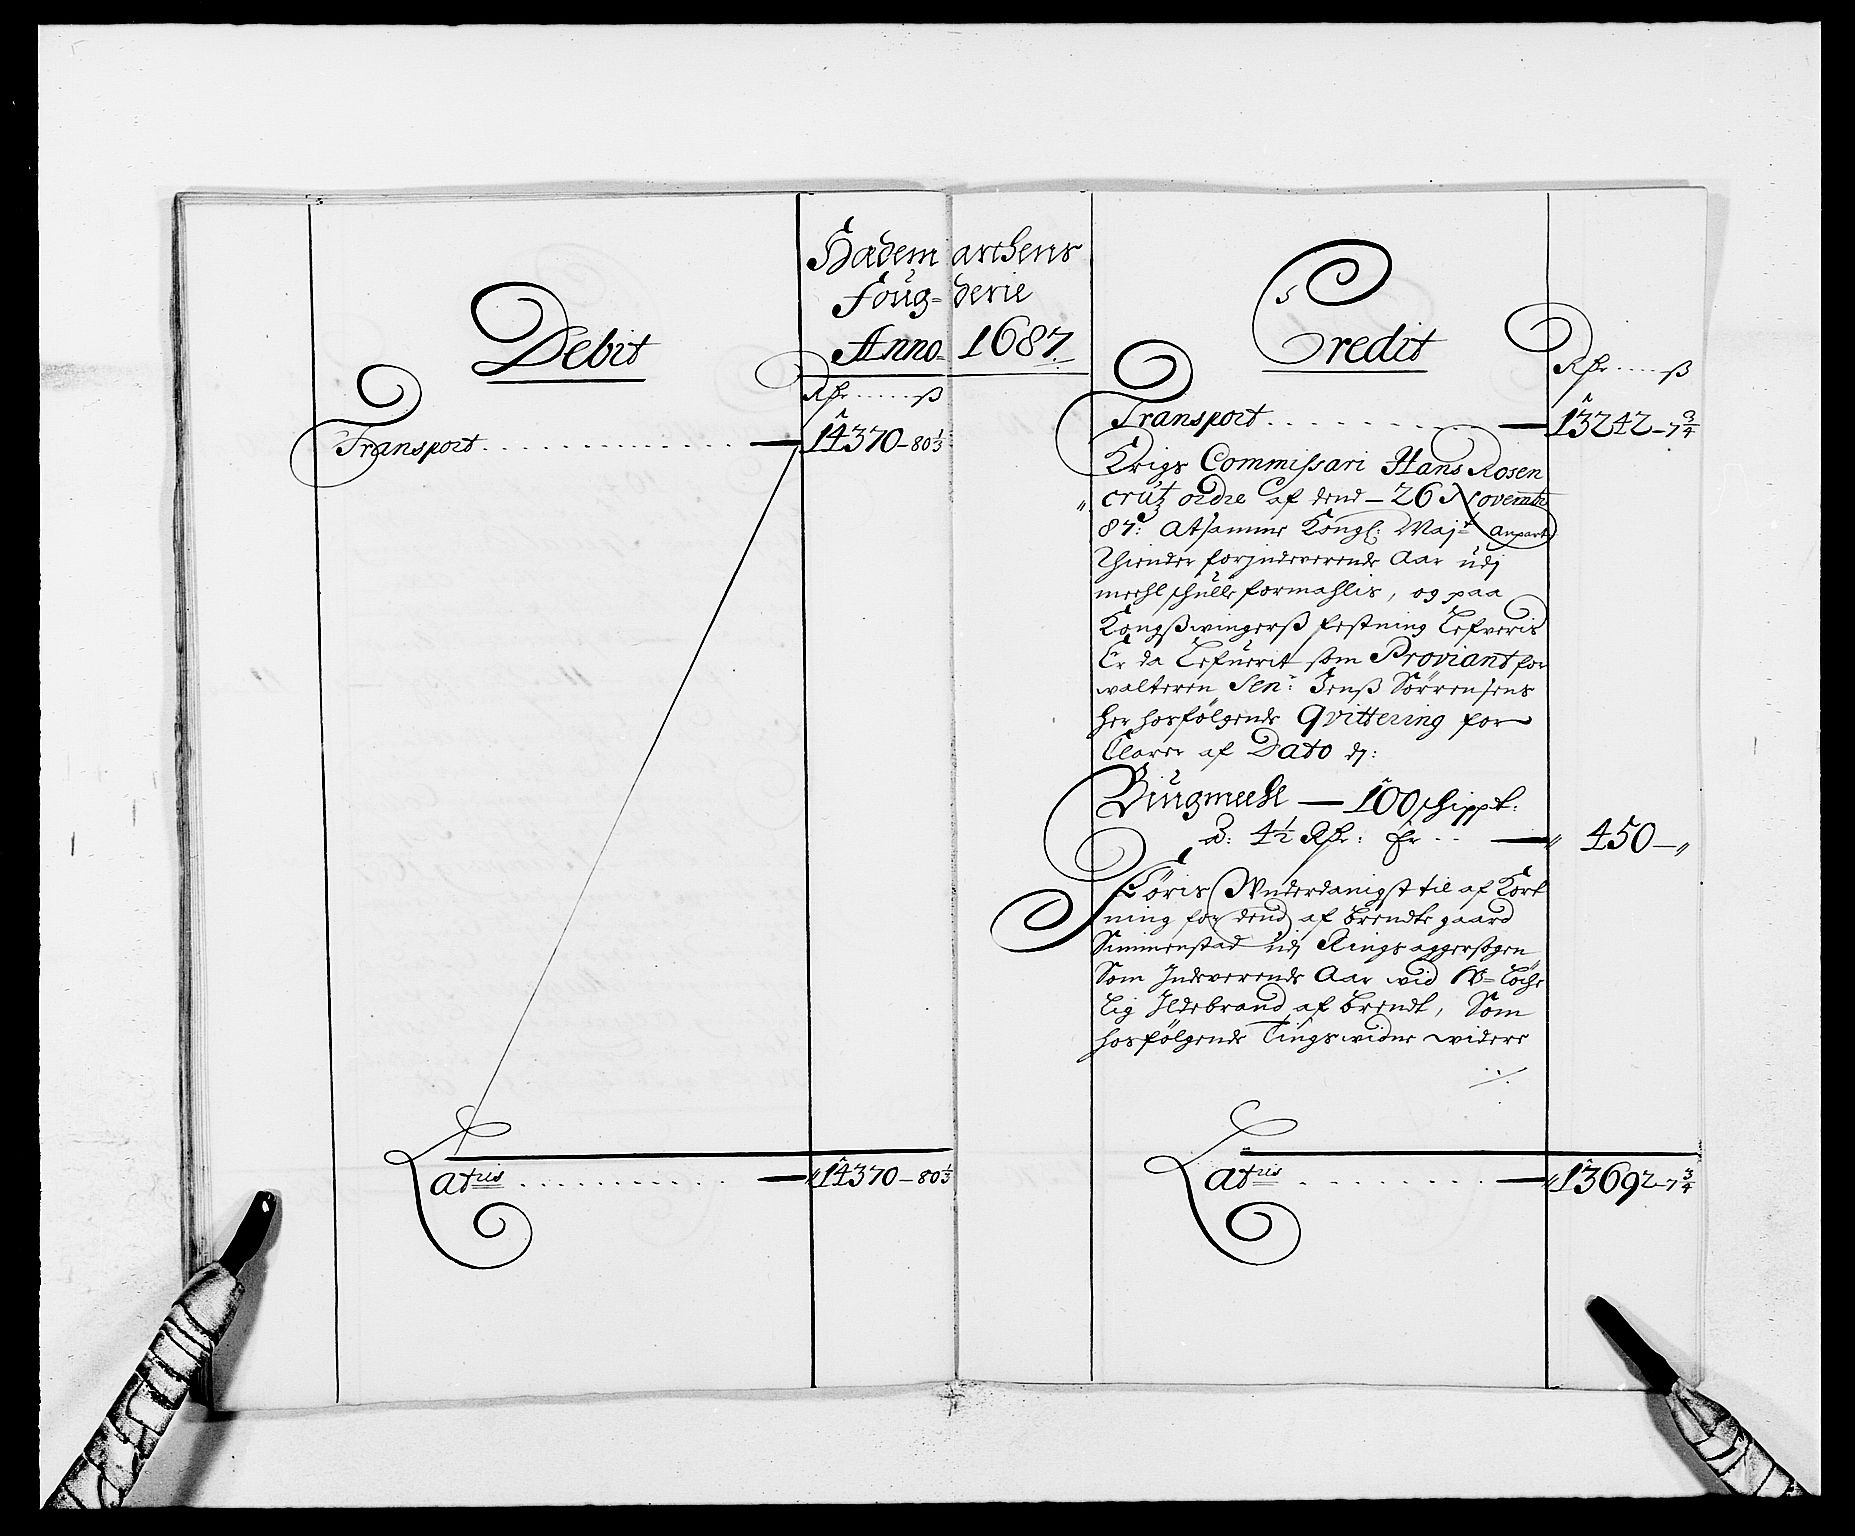 Hædemarchens
Foug=derie
Anno 1687
Debit
Rdr ..... ß
Transport ........... — 14370-80⅓
Latris ........... — „14370-80⅓
Credit
Rdr ..... ß
Transport ........... — 13242-7¾
Krigs Commissari Hans Rosen
„ crütz ordre af dend - 26 Novembr
87: At samme Kongl: Maj.t anpart
Thiender for Indeverende Aar udj
meehl schulle formahlis, og paa
Kongßwingerß festning Lefveris
Er da Lefuerit som Proviantfor
walteren Sen: Jenß Sørrensens
her hosfölgende Qvittering for
Clarer af Dato dj:
Biugmeehl — 100 schippt:
a: 4½ Rdr: Er .. — „ 450-„
Föris Wnderdanigst til af Kort
ning for dend af brendte gaard
Simmenstad udj Ringsaggersogen
Som Indeverende Aar wid W=löche
lig Ildebrand af brendt, Som
hosfölgende Tingswidne widere
./.
Latris ........... — „13692-7¾